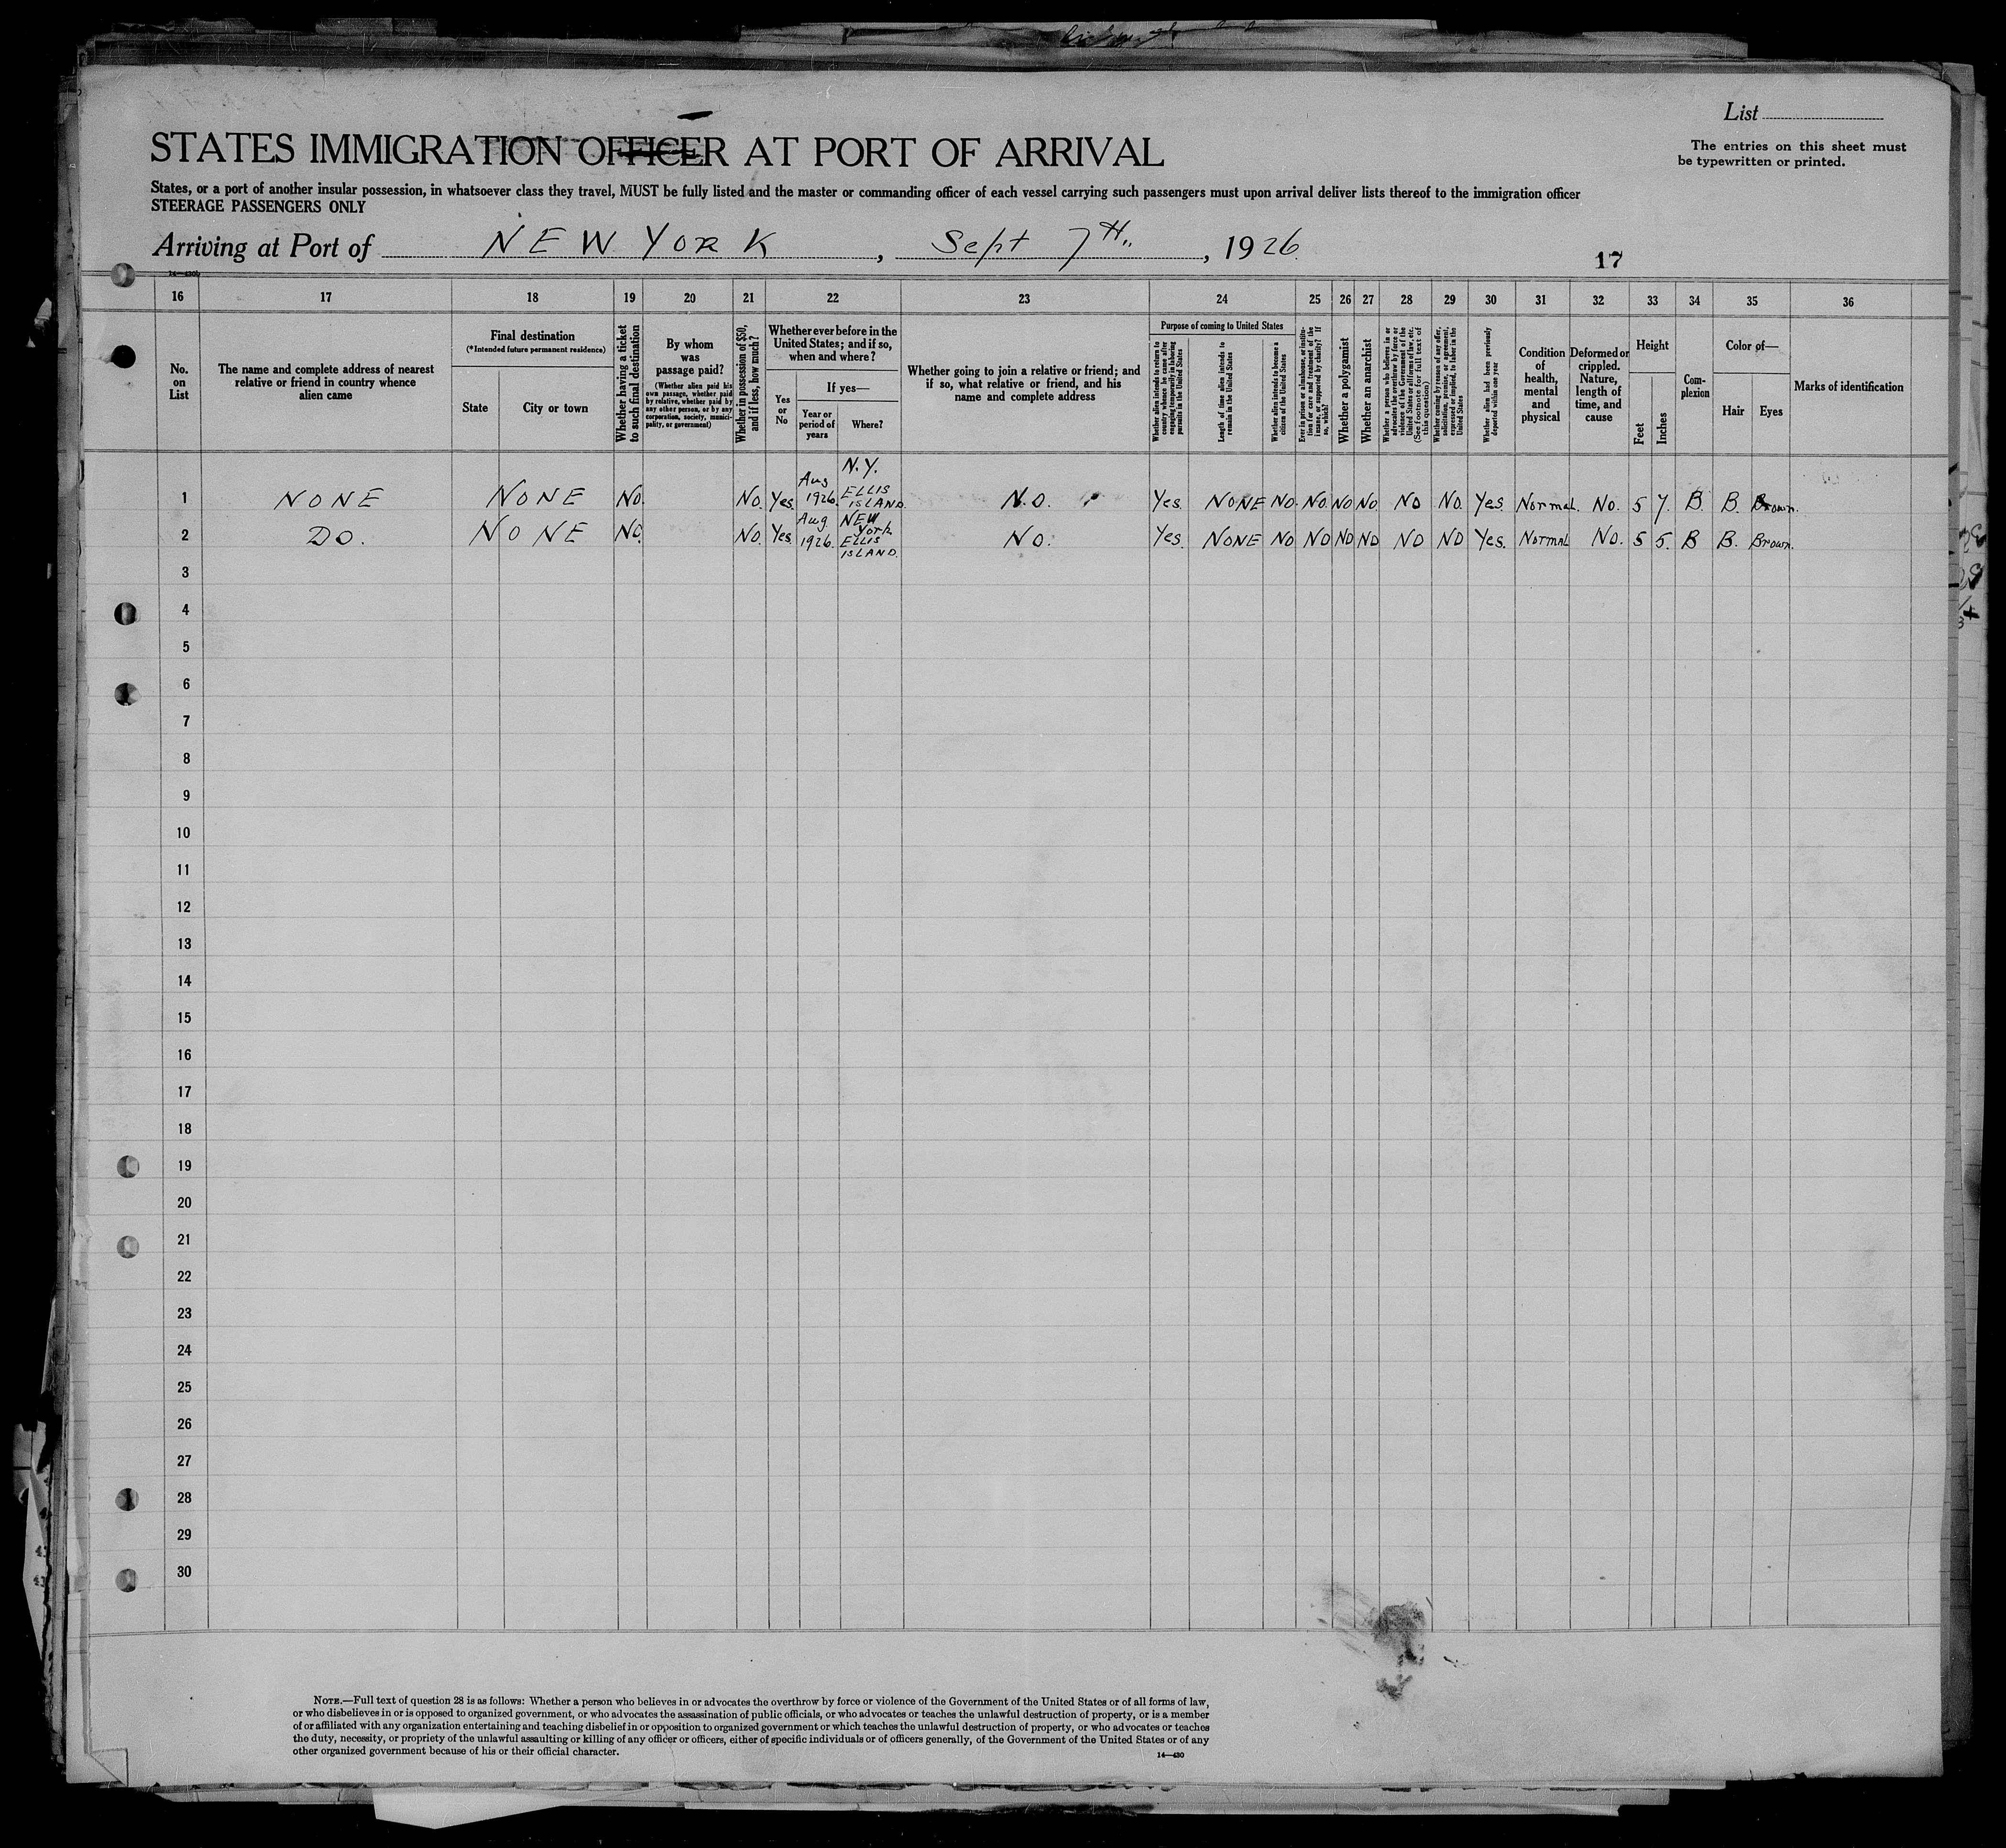 List
STATES IMMIGRATION OFFICER AT PORT OF ARRIVAL
The entries on this sheet must
be typewritten or printed.
States, or a port of another insular possession, in whatsoever class they travel, MUST be fully listed and the master or commanding officer of each vessel carrying such passengers must upon arrival deliver lists thereof to the immigration officer
STEERAGE PASSENGERS ONLY
Arriving at Port of NEW YORK, Sept 7TH, 1926
17
14—430b
16 17 18 19 20 21 22 23 24 25 26 27 28 29 30 31 32 33 34 35 36
No.
on
List
The name and complete address of nearest
relative or friend in country whence
alien came
Final destination
(*Intended future permanent residence)
State
City or town
Whether having a ticket
to such final destination
By whom
was
passage paid?
(Whether alien paid his
own passage, whether paid
by relative, whether paid by
any other person, or by any
corporation, society, munici-
pality, or government)
Whether in possession of $50,
and if less, how much?
Whether ever before in the
United States; and if so,
when and where?
Yes
or
No
If yes—
Year or
period of
years
Where?
Whether going to join a relative or friend; and
if so, what relative or friend, and his
name and complete address
Purpose of coming to United States
Whether alien intends to return to
country whence he came after
engaging temporarily in laboring
pursuits in the United States
Length of time alien intends to
remain in the United States
Whether alien intends to become a
citizen of the United States
Ever in prison or almshouse, or institu-
tion for care and treatment of the
insane, or supported by charity? If
so, which?
Whether a polygamist
Whether an anarchist
Whether a person who believes in or
advocates the overthrow by force or
violence of the Government of the
United States or all forms of law, etc.
(See footnote for full text of
this question)
Whether coming by reason of any offer,
solicitation, promise, or agreement,
expressed or implied, to labor in the
United States
Whether alien had been previously
deported within one year
Condition
of
health,
mental
and
physical
Deformed or
crippled.
Nature,
length of
time, and
cause
Height
Feet
Inches
Com-
plexion
Color of—
Hair
Eyes
Marks of identification
1 NONE NONE No. No. Yes. Aug 1926. N.Y. ELLIS ISLAND. No. Yes. NONE No. No. No No. No No. Yes. Normal. No. 5 7. B. B. Brown.
2 DO. NONE No. No. Yes. Aug 1926. NEW York ELLIS ISLAND. No. Yes. NONE No No No No No No Yes. Normal No. 5 5. B B. Brown.
3
4
5
6
7
8
9
10
11
12
13
14
15
16
17
18
19
20
21
22
23
24
25
26
27
28
29
30
NOTE.—Full text of question 28 is as follows: Whether a person who believes in or advocates the overthrow by force or violence of the Government of the United States or of all forms of law,
or who disbelieves in or is opposed to organized government, or who advocates the assassination of public officials, or who advocates or teaches the unlawful destruction of property, or is a member
of or affiliated with any organization entertaining and teaching disbelief in or opposition to organized government or which teaches the unlawful destruction of property, or who advocates or teaches
the duty, necessity, or propriety of the unlawful assaulting or killing of any officer or officers, either of specific individuals or of officers generally, of the Government of the United States or of any
other organized government because of his or their official character.
14—430